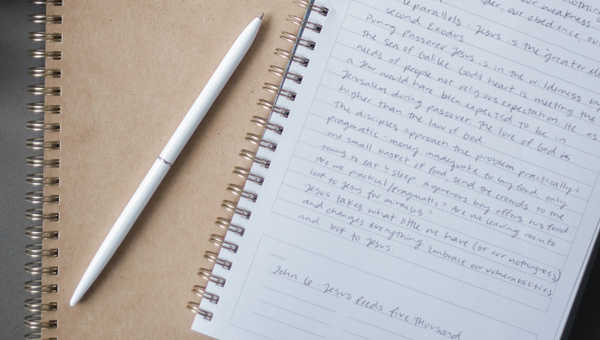 our weakness
our obedience. our
parallels - Jesus is the "greater
second Exodus
During Passover Jesus is in the wilderness by
the sea of Galilee. God's heart is meeting the
needs of people not religious expectation. He as
a Jew would have been expected to be in
Jerusalem during passover. The love of God is
higher than the law of God
The disciples approach the problem practically +
pragmatic - money inadequate to buy food, only
one small basket of food, send the crowds to the
towns to eat + sleep. A generous boy offers his food
Are we practical/pragmatic? Are we leaving room to
look to Jesus for miracles?
Jesus takes what little we have (or our nothingness)
and changes everything. Embrace our vulnerabilities
and look to Jesus.
John 6 - Jesus feeds five thousand